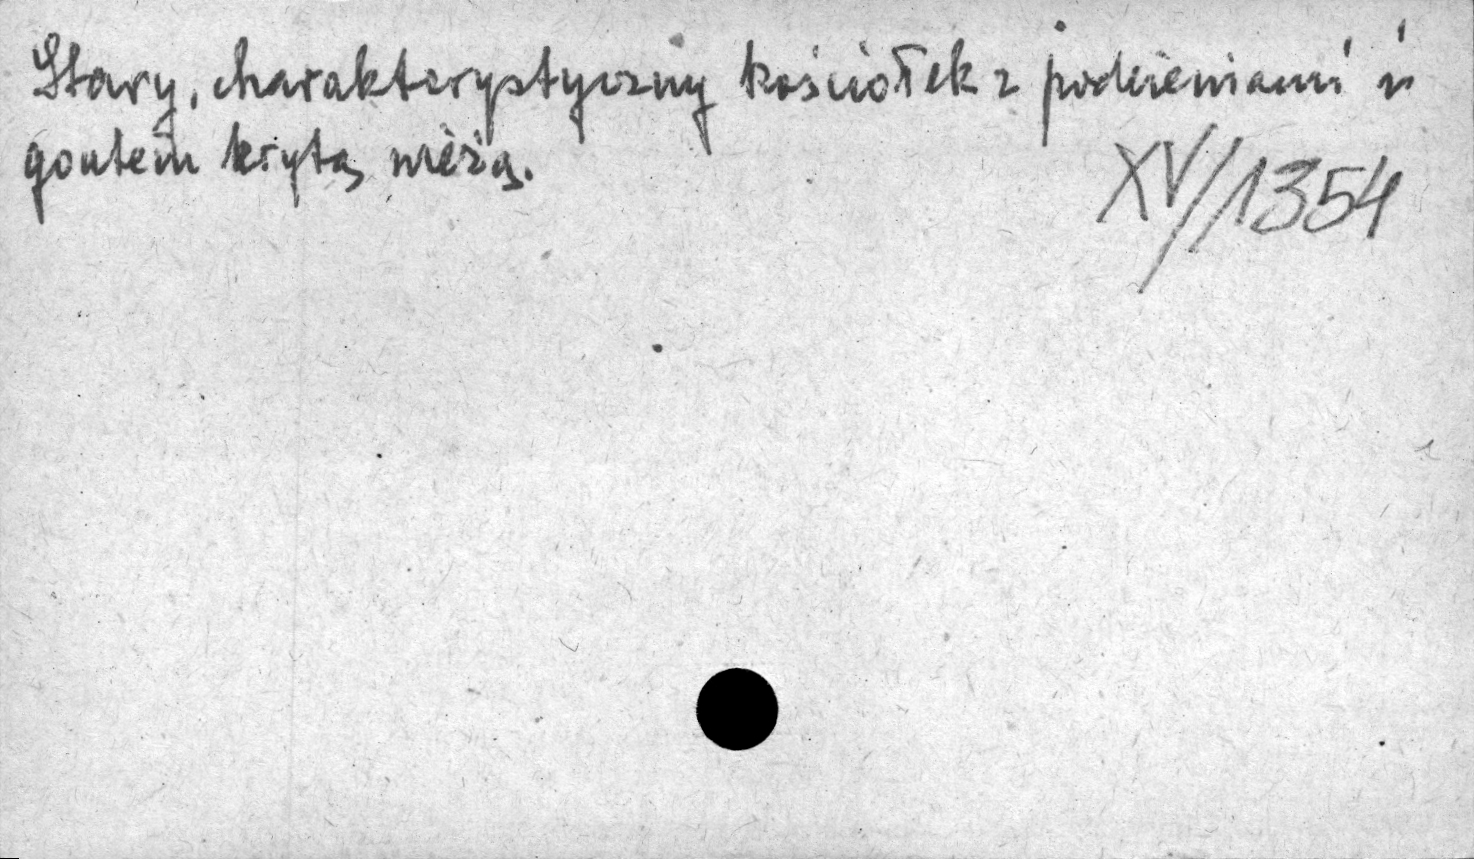 Stary, charakterystyczny kościołek z podcieniami i
gontem krytą wieżą.
XV/1354